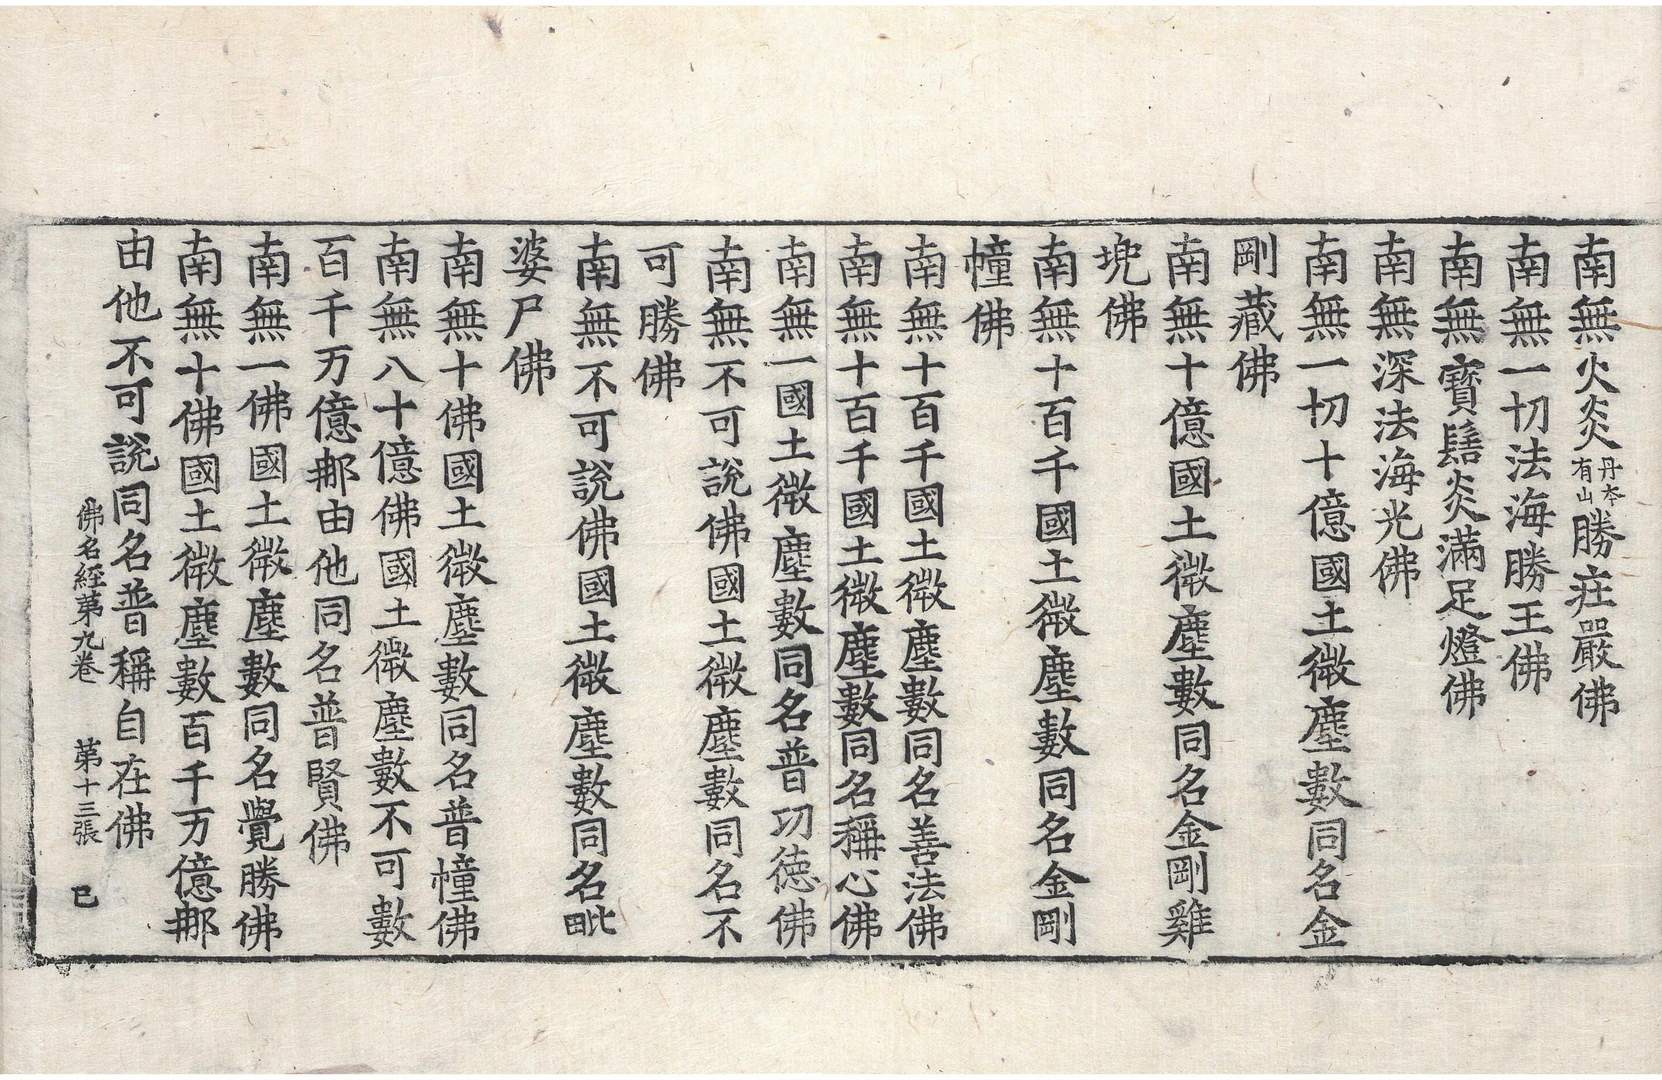 南無火炎丹本有山勝庄嚴佛
南無一切法海勝王佛
南無寳髻炎滿足燈佛
南無深法海光佛
南無一切十億國土微塵數同名金
剛藏佛
南無十億國土微塵數同名金剛雞
兜佛
南無十百千國土微塵數同名金剛
幢佛
南無十百千國土微塵數同名善法佛
南無十百千國土微塵數同名稱心佛
南無一國土微塵數同名普功徳佛
南無不可說佛國土微塵數同名不
可勝佛
南無不可說佛國土微塵數同名毗
婆尸佛
南無十佛國土微塵數同名普幢佛
南無八十億佛國土微塵數不可數
百千万億那由他同名普賢佛
南無一佛國土微塵數同名覺勝佛
南無十佛國土微塵數百千万億那
由他不可說同名普稱自在佛
佛名經苐九卷 苐十三張 巳